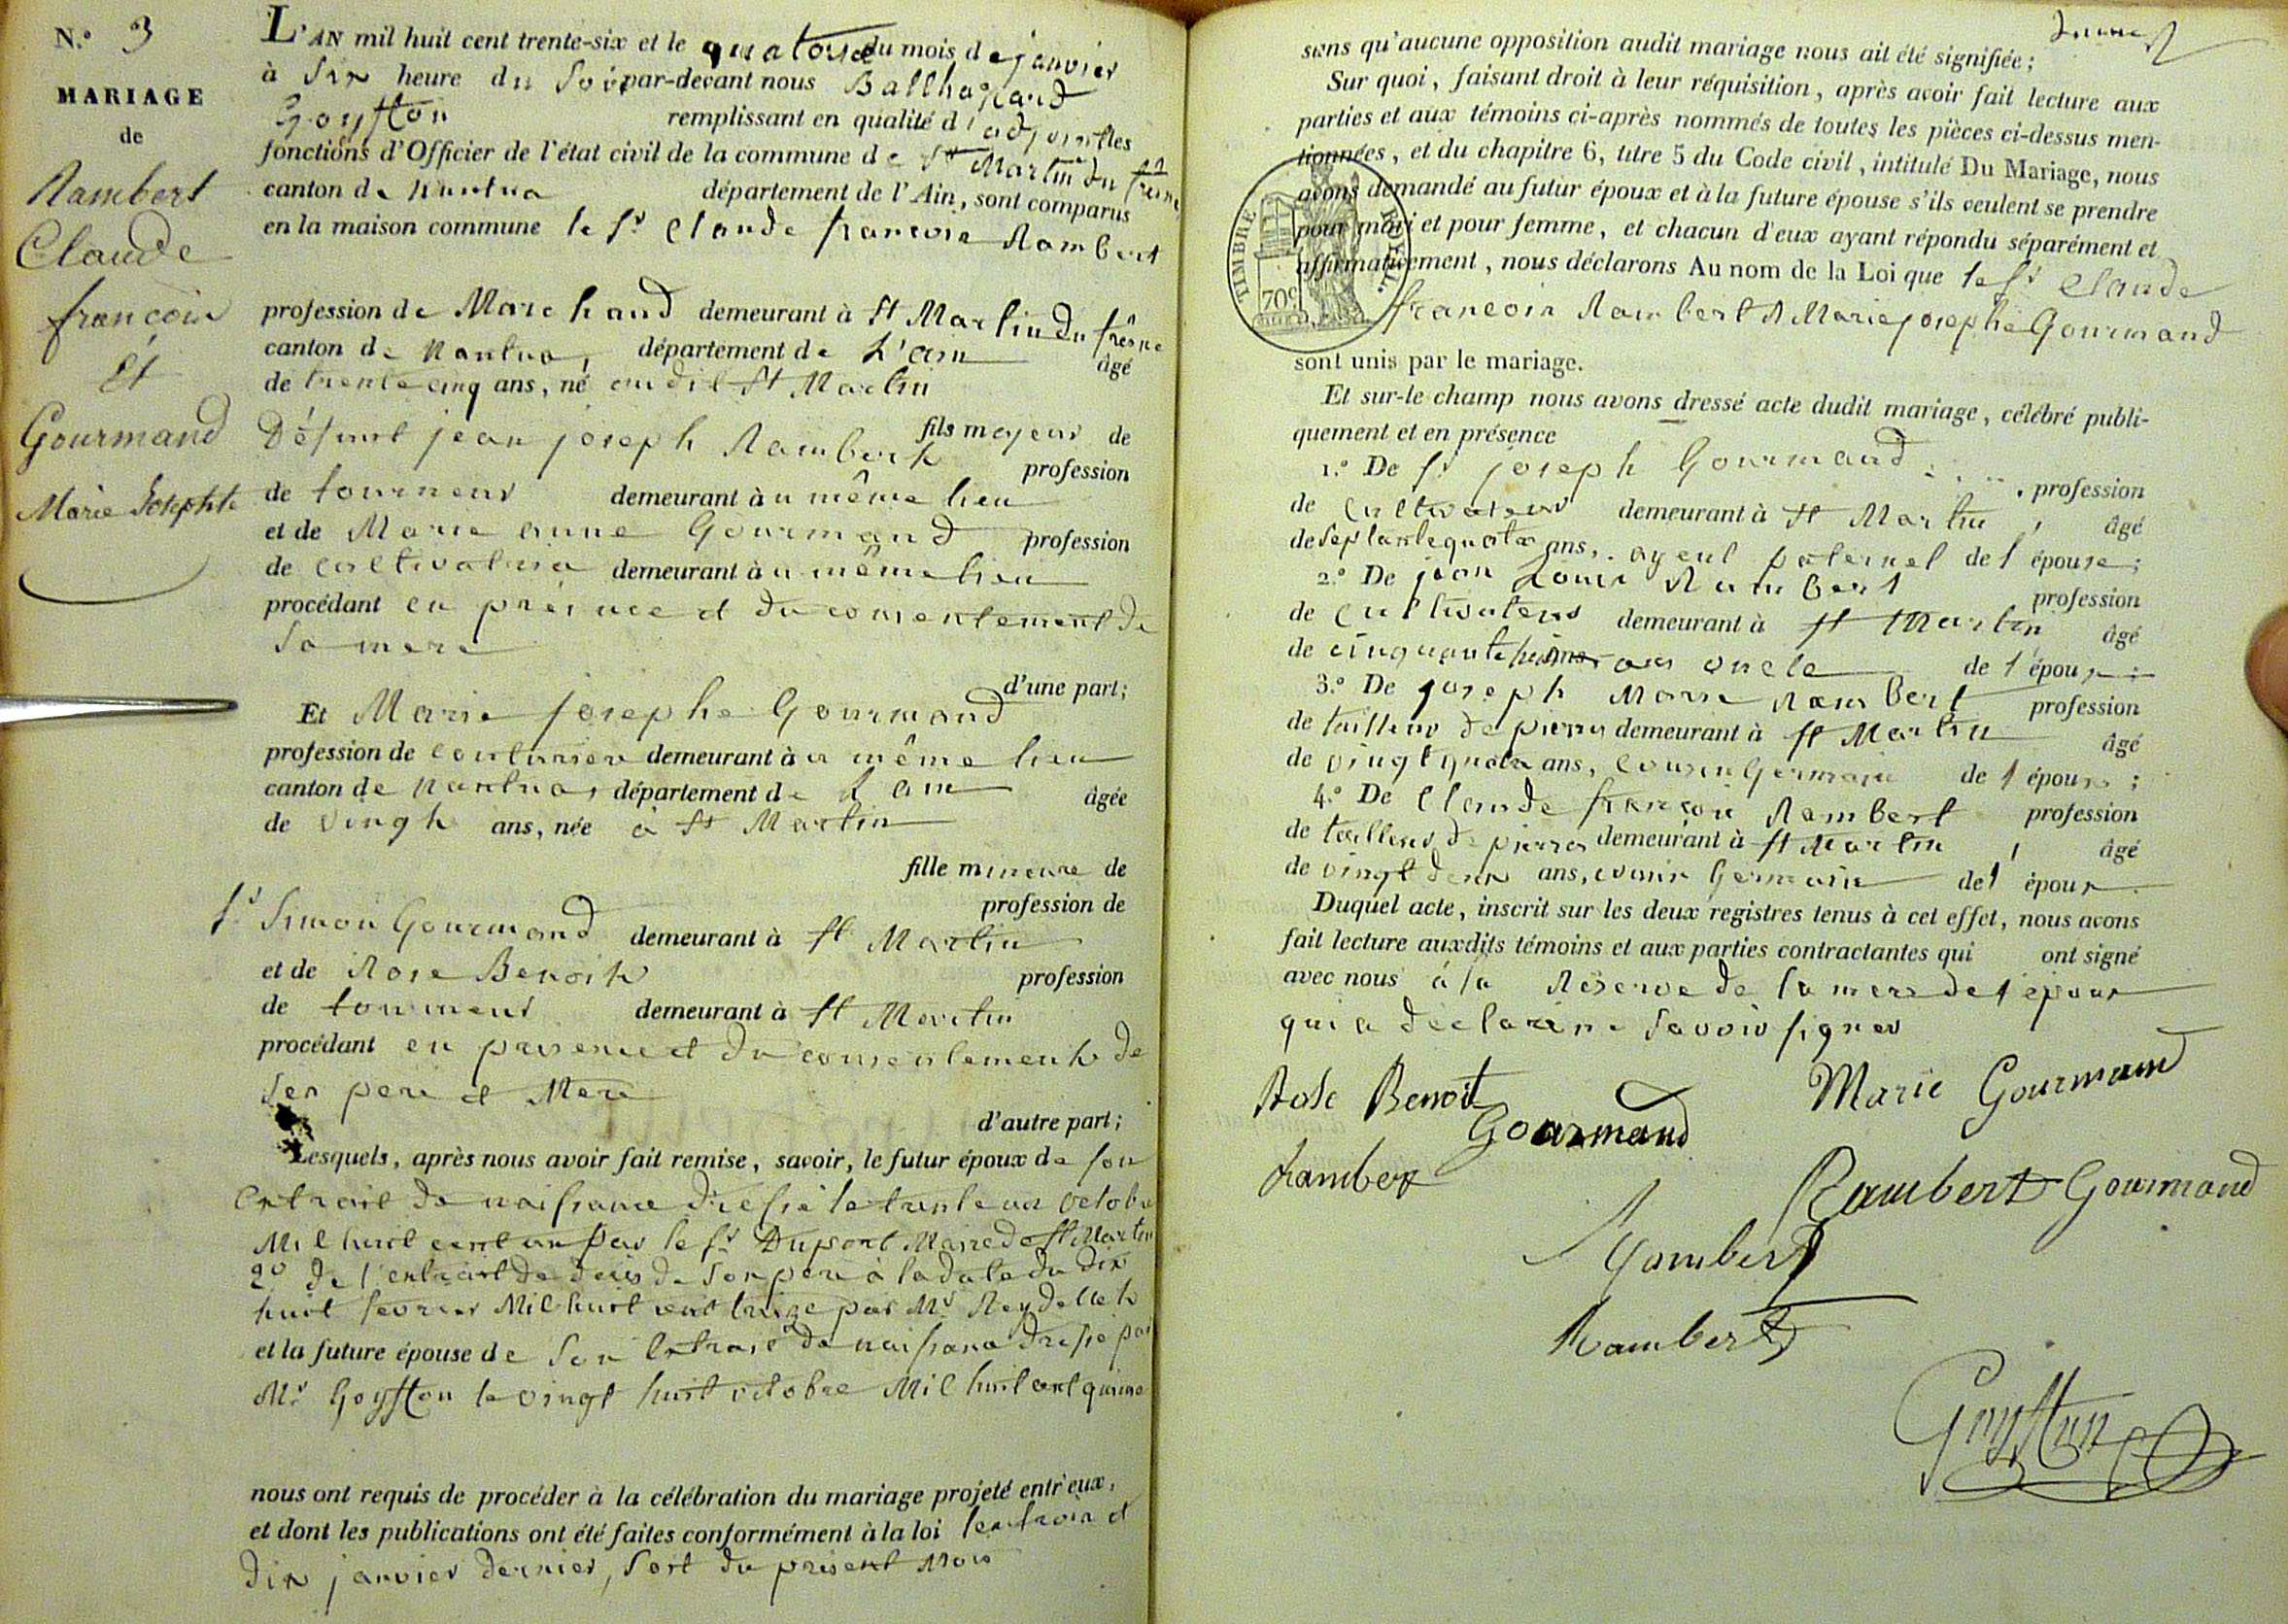 N.o 3
MARIAGE
de
Rambert
Claude
françois
Et
Gourmand
Marie Josephte
L'AN mil huit cent trente-six et le quatorze du mois de janvier
à Six heure du Soir par-devant nous Balthazard
Goyffon remplissant en qualité d'adjoint les
fonctions d'Officier de l'état civil de la commune de St Martin du frêne
canton de Nantua département de l'Ain, sont comparus
en la maison commune le Sr Claude francois Rambert
profession de Marchand demeurant à St Martin du frêne
canton de Nantua, département de L'ain âgé
de trente cinq ans, né audit St Martin
fils majeur de
Défunt jean joseph Rambert profession
de tourneur demeurant à u même lieu
et de Marie anne Gourmand profession
de cultivatrice demeurant à u même lieu
procédant en présence et du consentement de
Sa mere
d'une part;
Et Marie josephe Gourmand
profession de couturiere demeurant à u même lieu
canton de Nantua, département de L'ain âgée
de vingt ans, née à St Martin
fille mineure de
Sr Simon Gourmand profession de
demeurant à St Martin
et de Rose Benoit profession
de tourneur demeurant à St Martin
procédant en presence et du consentement de
Ses pere et Mere
d'autre part;
Lesquels, après nous avoir fait remise, savoir, le futur époux de son
Extrait de naissance dressé le trente un octobre
Mil huit cent un par le Sr Dupont Maire de St Martin
2o de l'extrait de deces de Son pere à la date du dix
huit fevrier Mil huit cent treize par Mr Reydellet
et la future épouse de Son Extrait de naissance dressé par
Mr Goyffon le vingt huit octobre Mil huit cent quinze
nous ont requis de procéder à la célébration du mariage projeté entr'eux,
et dont les publications ont été faites conformément à la loi les trois et
dix janvier dernier, Sort du présent Mois
sans qu'aucune opposition audit mariage nous ait été signifiée;
Sur quoi, faisant droit à leur réquisition, après avoir fait lecture aux
parties et aux témoins ci-après nommés de toutes les pièces ci-dessus men-
tionnées, et du chapitre 6, titre 5 du Code civil, intitulé Du Mariage, nous
avons demandé au futur époux et à la future épouse s'ils veulent se prendre
pour mari et pour femme, et chacun d'eux ayant répondu séparément et
affirmativement, nous déclarons Au nom de la Loi que le Sr Claude
francois Rambert & Marie josephe Gourmand
TIMBRE ROYAL.
70c
sont unis par le mariage.
Et sur-le champ nous avons dressé acte dudit mariage, célébré publi-
quement et en présence
1.o De Sr joseph Gourmand profession
de Cultivateur demeurant à St Martin, âgé
de Septante quatre ans, ayeul paternel de l'épouse;
2.o De jean Louis Rambert profession
de Cultivateur demeurant à St Martin âgé
de cinquante ans oncle de l'époux;
3.o De joseph Marie Rambert profession
de tailleur de pierres demeurant à St Martin âgé
de vingt quatre ans, cousin Germain de l'époux;
4.o De Claude françois Rambert profession
de tailleur de pierres demeurant à St Martin, âgé
de vingt deux ans, cousin Germain de l'époux
Duquel acte, inscrit sur les deux registres tenus à cet effet, nous avons
fait lecture auxdits témoins et aux parties contractantes qui ont signé
avec nous à la Réserve de la mere de l'époux
qui a déclaré ne Savoir signer
Rose Benoit Marie Gourmand
Gourmand
Rambert Rambert Gourmand
Rambert
Rambert
Goyffon